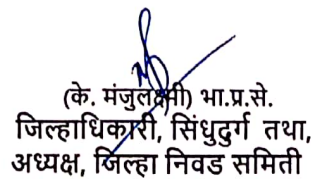 (के. मंजुलक्ष्मी) भा.प्र.से.
जिल्हाधिकारी, सिंधुदुर्ग तथा,
अध्यक्ष, जिल्हा निवड समिती